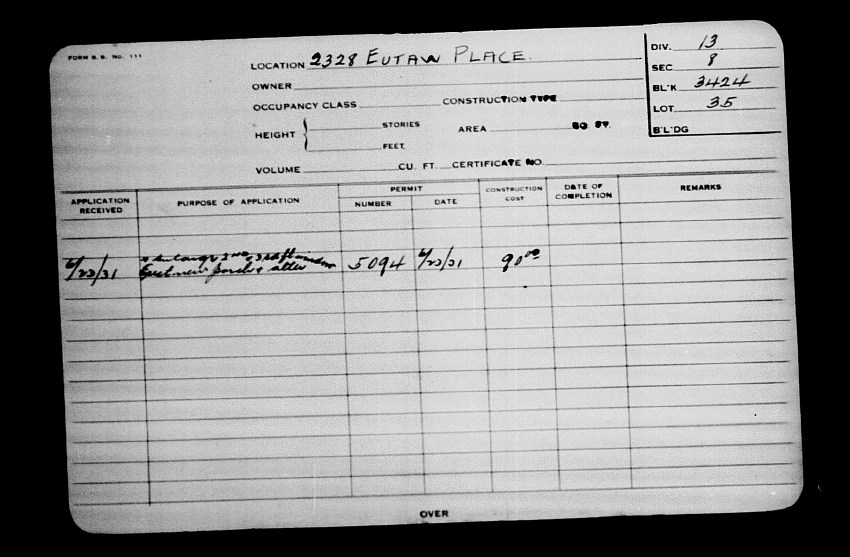 FORM B. B. No. 111
LOCATION 2328 EUTAW PLACE.
OWNER
OCCUPANCY CLASS CONSTRUCTION TYPE
HEIGHT { STORIES AREA SQ FT.
FEET
VOLUME CU. FT. CERTIFICATE NO.
DIV. 13
SEC 8
BL'K 3424
LOT 35
B'L'DG
APPLICATION RECEIVED PURPOSE OF APPLICATION PERMIT NUMBER DATE CONSTRUCTION COST DATE OF COMPLETION REMARKS
& enlarge 2nd
6/23/31 new porch & alter 5094 6/23/31 90 00
OVER